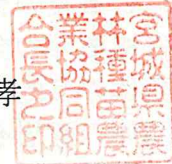 孝
宮城県農
林種苗農
業協同組
合長之印